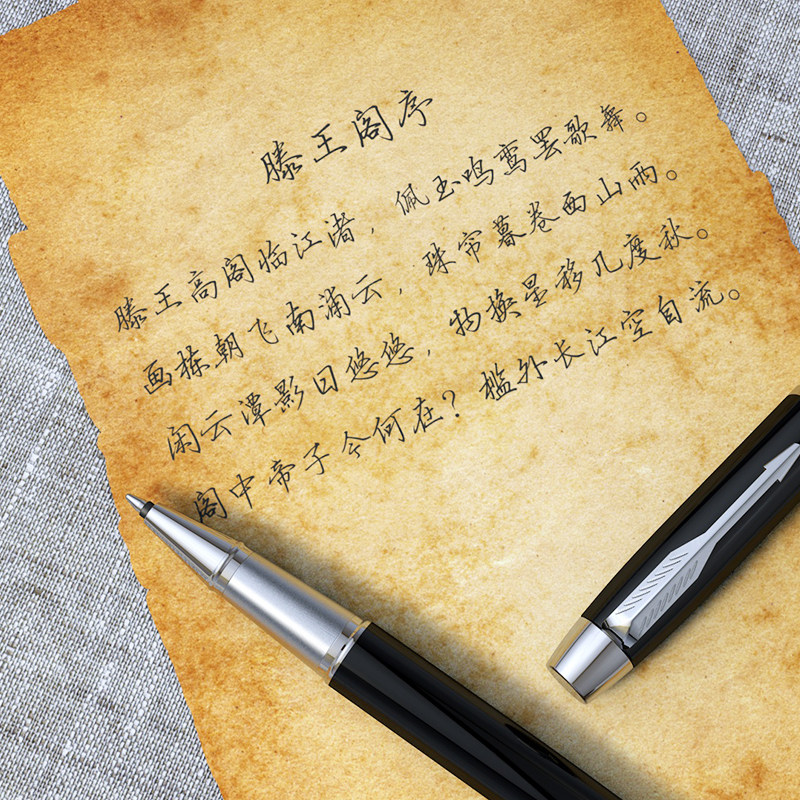 滕王阁序
滕王高阁临江渚，佩玉鸣鸾罢歌舞。
画栋朝飞南浦云，珠帘暮卷西山雨。
闲云潭影日悠悠，物换星移几度秋。
阁中帝子今何在？槛外长江空自流。